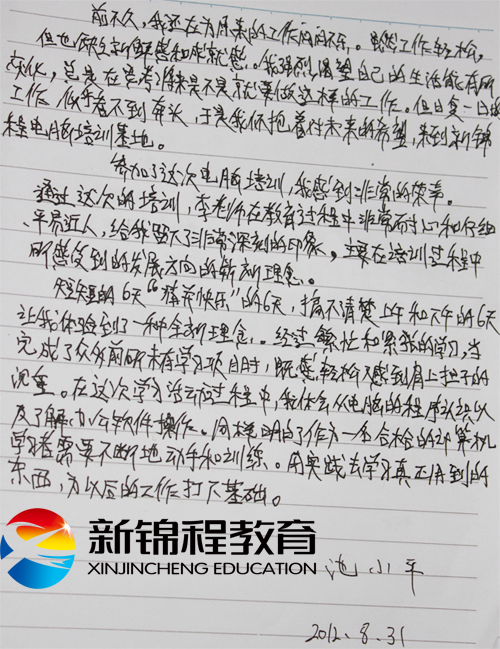 前不久，我还在为原来的工作闷闷不乐。虽然工作轻松，
但也缺乏新鲜感和成就感。我强烈渴望自己的生活能有所
变化，总是在思考将来是不是就要做这样的工作。但日复一日的
工作似乎看不到奔头，于是我怀抱着对未来的希望，来到新锦
程电脑培训基地。
参加了这次电脑培训，我感到非常的荣幸。
通过这次的培训，李老师在教育过程中非常耐心和仔细
、平易近人，给我留下了非常深刻的印象，主要在培训过程中
所感受到的发展方向的新理念。
短短的6天“痛并快乐”的6天，搞不清楚上午和下午的6天
让我体验到了一种全新理念．经过繁忙和紧张的学习，当
完成了众多前所未有学习项目时，既感轻松又感到肩上担子的
沉重。在这次学习活动过程中，我体会从电脑的程序认识以
及了解办公软件操作。同样明白了作为一个合格的计算机
学习者需要不断地动手和训练。用实践去学习真正用到的
东西，为以后的工作打下基础。
新锦程教育
XINJINCHENG EDUCATION
池小平
2012.8.31